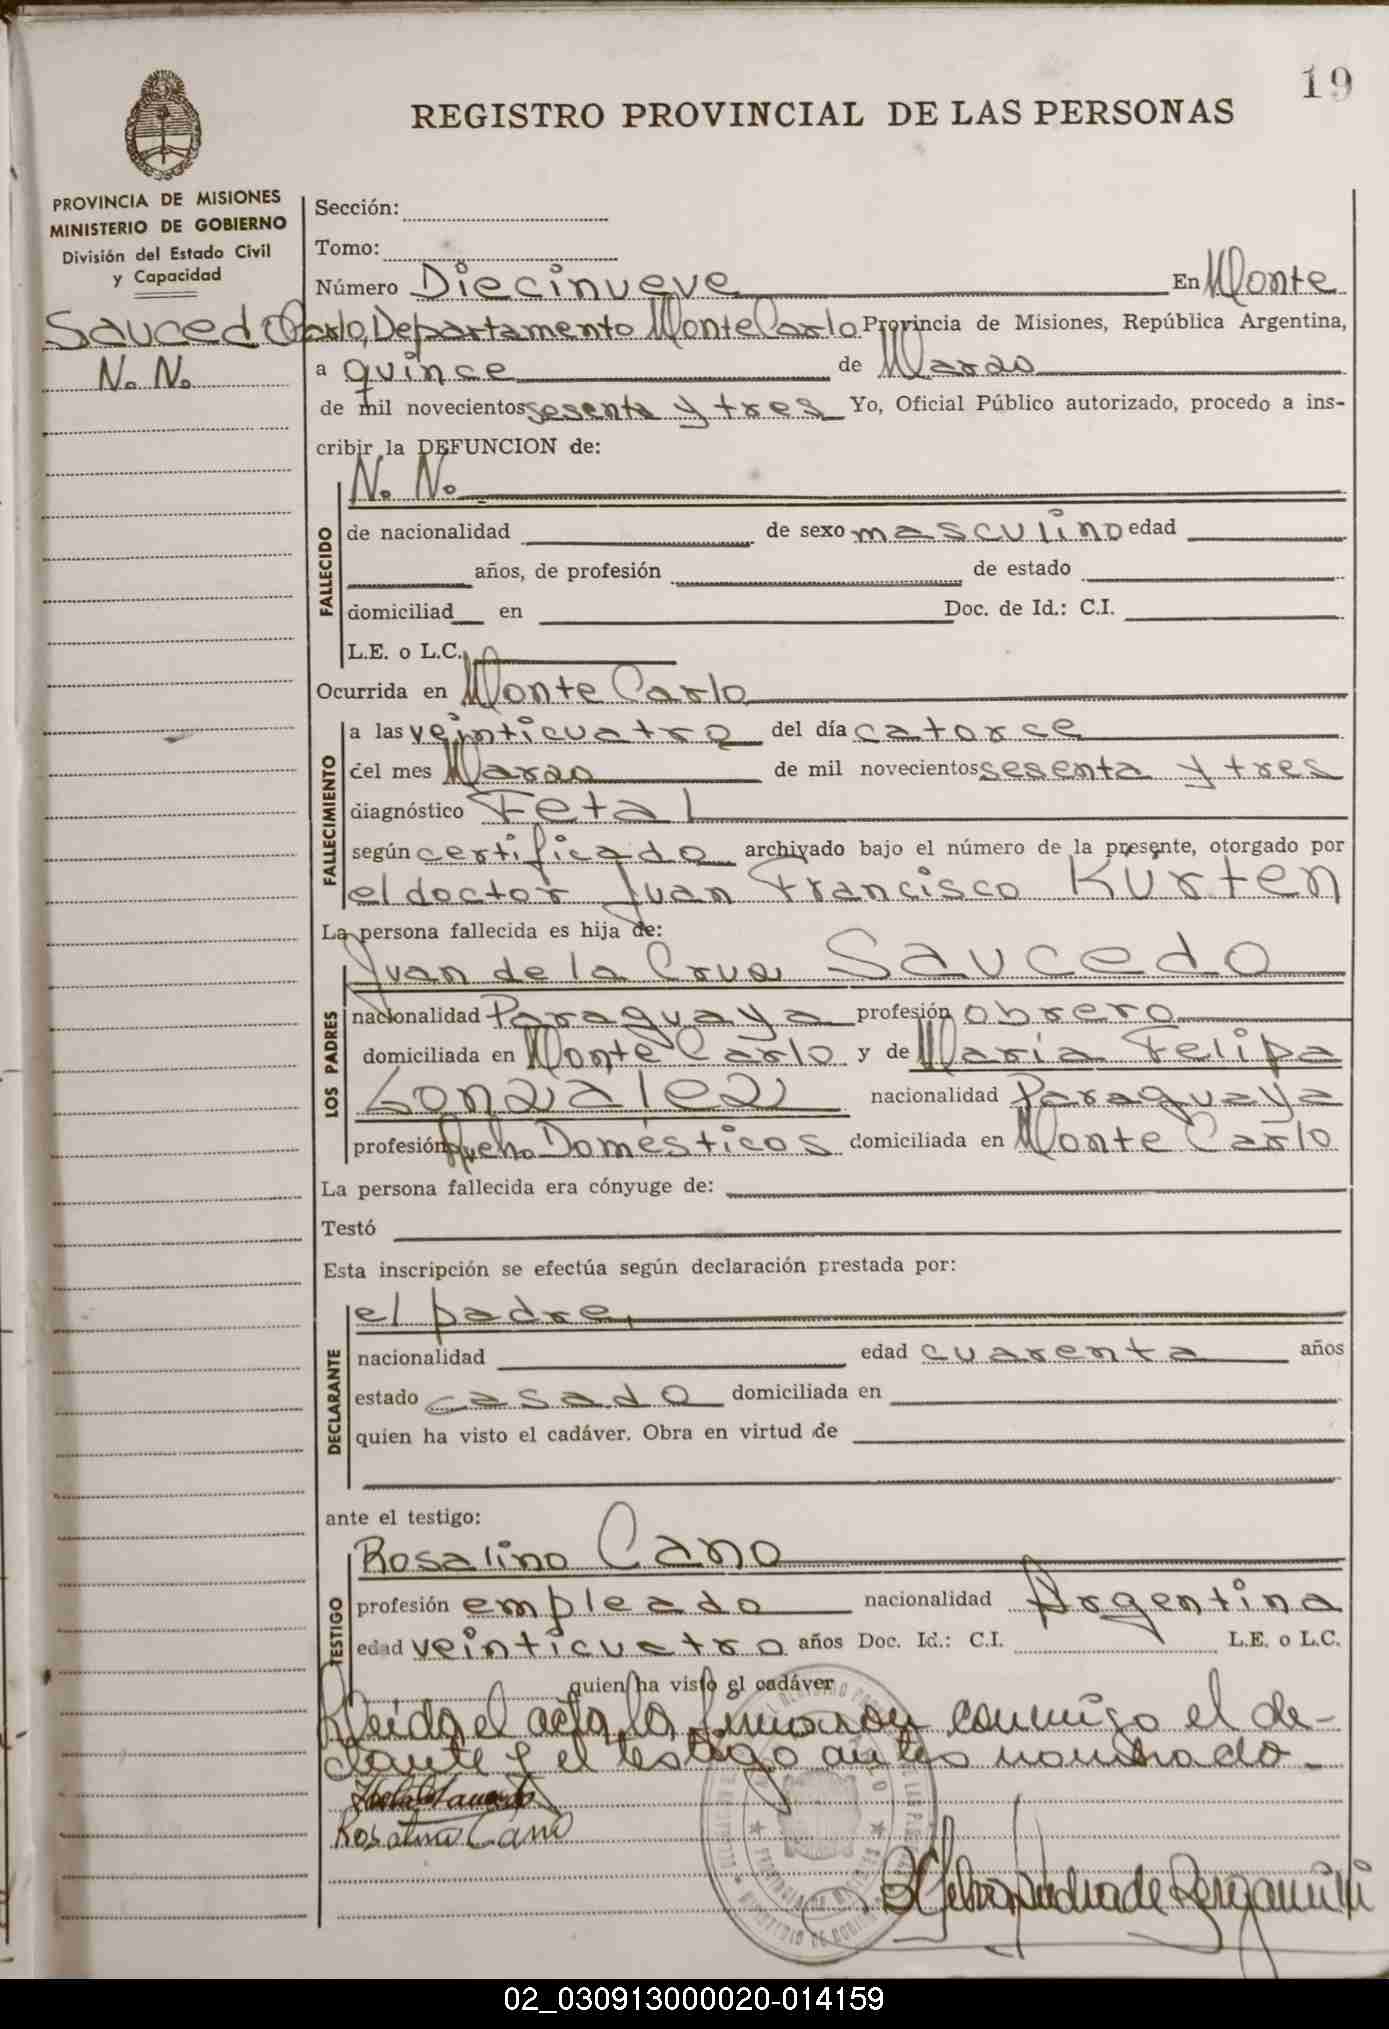 19
REGISTRO PROVINCIAL DE LAS PERSONAS
PROVINCIA DE MISIONES
MINISTERIO DE GOBIERNO
División del Estado Civil
y Capacidad
Saucedo
N. N.
Sección:
Tomo:
Número Diecinueve En Monte
Carlo, Departamento Monte Carlo Provincia de Misiones, República Argentina,
a quince de Marzo
de mil novecientos sesenta y tres Yo, Oficial Público autorizado, procedo a ins-
cribir la DEFUNCION de:
N. N.
FALLECIDO
de nacionalidad de sexo masculino edad
años, de profesión de estado
domiciliad en Doc. de Id.: C.I.
L.E. o L.C.
Ocurrida en Monte Carlo
FALLECIMIENTO
a las veinticuatro del día catorce
del mes Marzo de mil novecientos sesenta y tres
diagnóstico Fetal
según certificado archivado bajo el número de la presente, otorgado por
el doctor Juan Francisco Kürten
La persona fallecida es hija de:
LOS PADRES
Juan de la Cruz Saucedo
nacionalidad Paraguaya profesión obrero
domiciliada en Monte Carlo y de María Felipa
Gonzalez nacionalidad Paraguaya
profesión Queha. Domésticos domiciliada en Monte Carlo
La persona fallecida era cónyuge de:
Testó
Esta inscripción se efectúa según declaración prestada por:
DECLARANTE
el padre,
nacionalidad edad cuarenta años
estado casado domiciliada en
quien ha visto el cadáver. Obra en virtud de
ante el testigo:
TESTIGO
Rosalino Cano
profesión empleado nacionalidad Argentina
edad veinticuatro años Doc. Id.: C.I. L.E. o L.C.
quien ha visto el cadáver
Leída el acta, la firmaron conmigo el de-
clarante y el testigo antes nombrado.
Rosalino Cano
de Bergamini
02_030913000020-014159